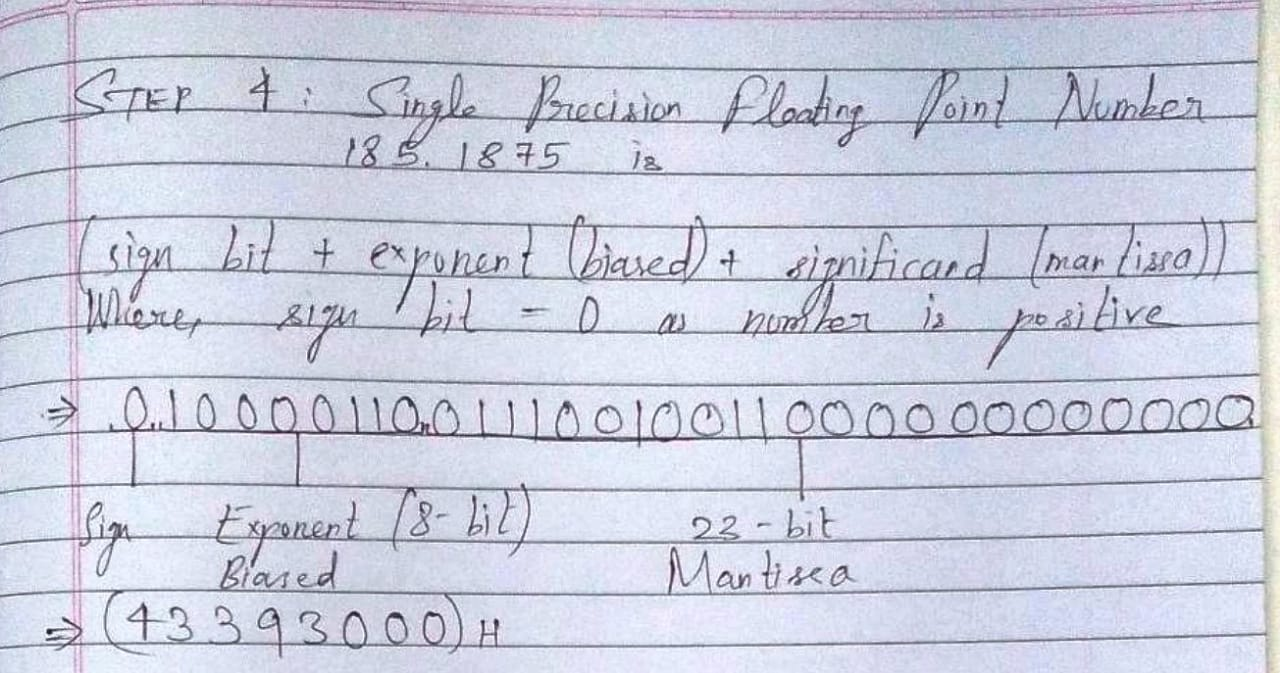 STEP 4 : Single Precision Floating Point Number
185.1875 is
(sign bit + exponent (biased) + significand (mantissa))
Where, sign bit = 0 as number is positive
⇒ 0.10000110.01110010011000000000000
Sign Exponent (8-bit) 23-bit
Biased Mantissa
⇒ (43393000)H